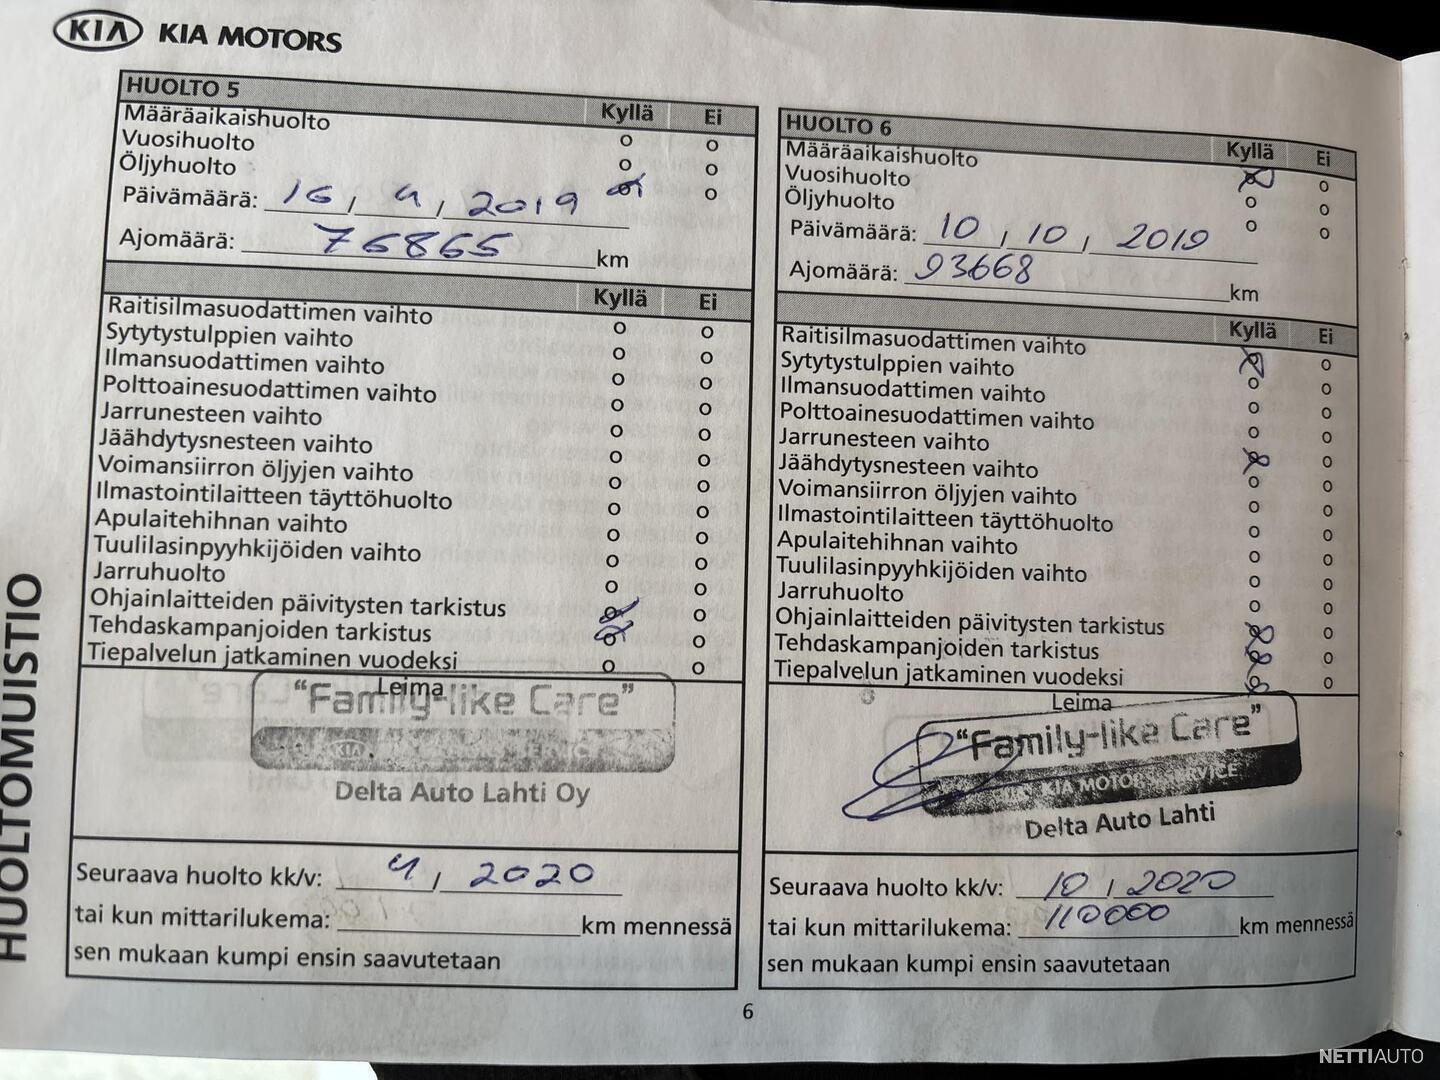 KIA KIA MOTORS
HUOLTOMUISTIO
HUOLTO 5
Kyllä Ei
Määräaikaishuolto o o
Vuosihuolto o o
Öljyhuolto o o
Päivämäärä: 16, 4, 2019
Ajomäärä: 76865 km
Kyllä Ei
Raitisilmasuodattimen vaihto o o
Sytytystulppien vaihto o o
Ilmansuodattimen vaihto o o
Polttoainesuodattimen vaihto o o
Jarrunesteen vaihto o o
Jäähdytysnesteen vaihto o o
Voimansiirron öljyjen vaihto o o
Ilmastointilaitteen täyttöhuolto o o
Apulaitehihnan vaihto o o
Tuulilasinpyyhkijöiden vaihto o o
Jarruhuolto o o
Ohjainlaitteiden päivitysten tarkistus o o
Tehdaskampanjoiden tarkistus o o
Tiepalvelun jatkaminen vuodeksi o o
Leima
"Family-like Care"
KIA
Delta Auto Lahti Oy
Seuraava huolto kk/v: 4, 2020
tai kun mittarilukema: km mennessä
sen mukaan kumpi ensin saavutetaan
HUOLTO 6
Kyllä Ei
Määräaikaishuolto o o
Vuosihuolto o o
Öljyhuolto o o
Päivämäärä: 10, 10, 2019
Ajomäärä: 93668 km
Kyllä Ei
Raitisilmasuodattimen vaihto o o
Sytytystulppien vaihto o o
Ilmansuodattimen vaihto o o
Polttoainesuodattimen vaihto o o
Jarrunesteen vaihto o o
Jäähdytysnesteen vaihto o o
Voimansiirron öljyjen vaihto o o
Ilmastointilaitteen täyttöhuolto o o
Apulaitehihnan vaihto o o
Tuulilasinpyyhkijöiden vaihto o o
Jarruhuolto o o
Ohjainlaitteiden päivitysten tarkistus o o
Tehdaskampanjoiden tarkistus o o
Tiepalvelun jatkaminen vuodeksi o o
Leima
"Family-like Care"
KIA KIA MOTORS SERVICE
Delta Auto Lahti
Seuraava huolto kk/v: 10, 2020
tai kun mittarilukema: 110000 km mennessä
sen mukaan kumpi ensin saavutetaan
6
NETTIAUTO